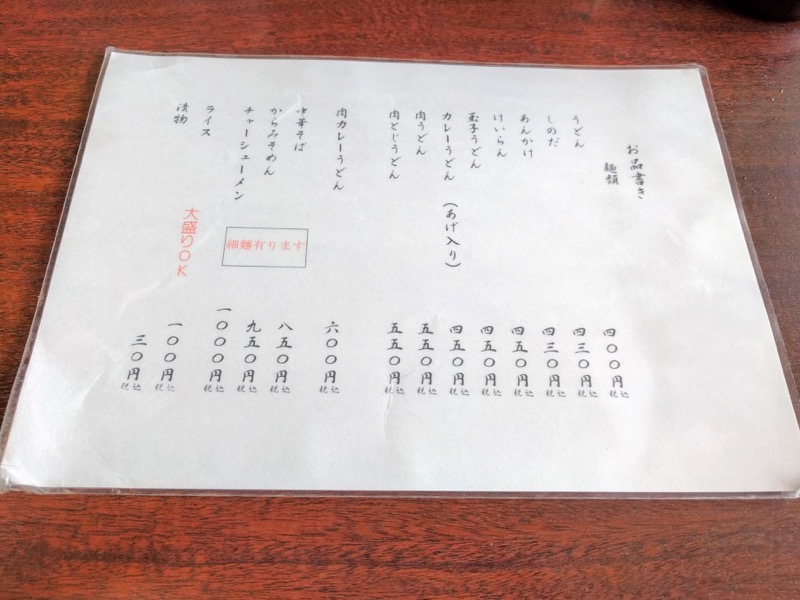 お品書き
麺類
うどん 四〇〇円 税込
しのだ 四三〇円 税込
あんかけ 四三〇円 税込
けいらん 四五〇円 税込
玉子うどん 四五〇円 税込
カレーうどん (あげ入り) 四五〇円 税込
肉うどん 五五〇円 税込
肉とじうどん 五五〇円 税込
肉カレーうどん 六〇〇円 税込
中華そば 八五〇円 税込
からみそめん 九五〇円 税込
チャーシューメン 一〇〇〇円 税込
細麺有ります
ライス 一〇〇円 税込
大盛りOK
漬物 三〇円 税込